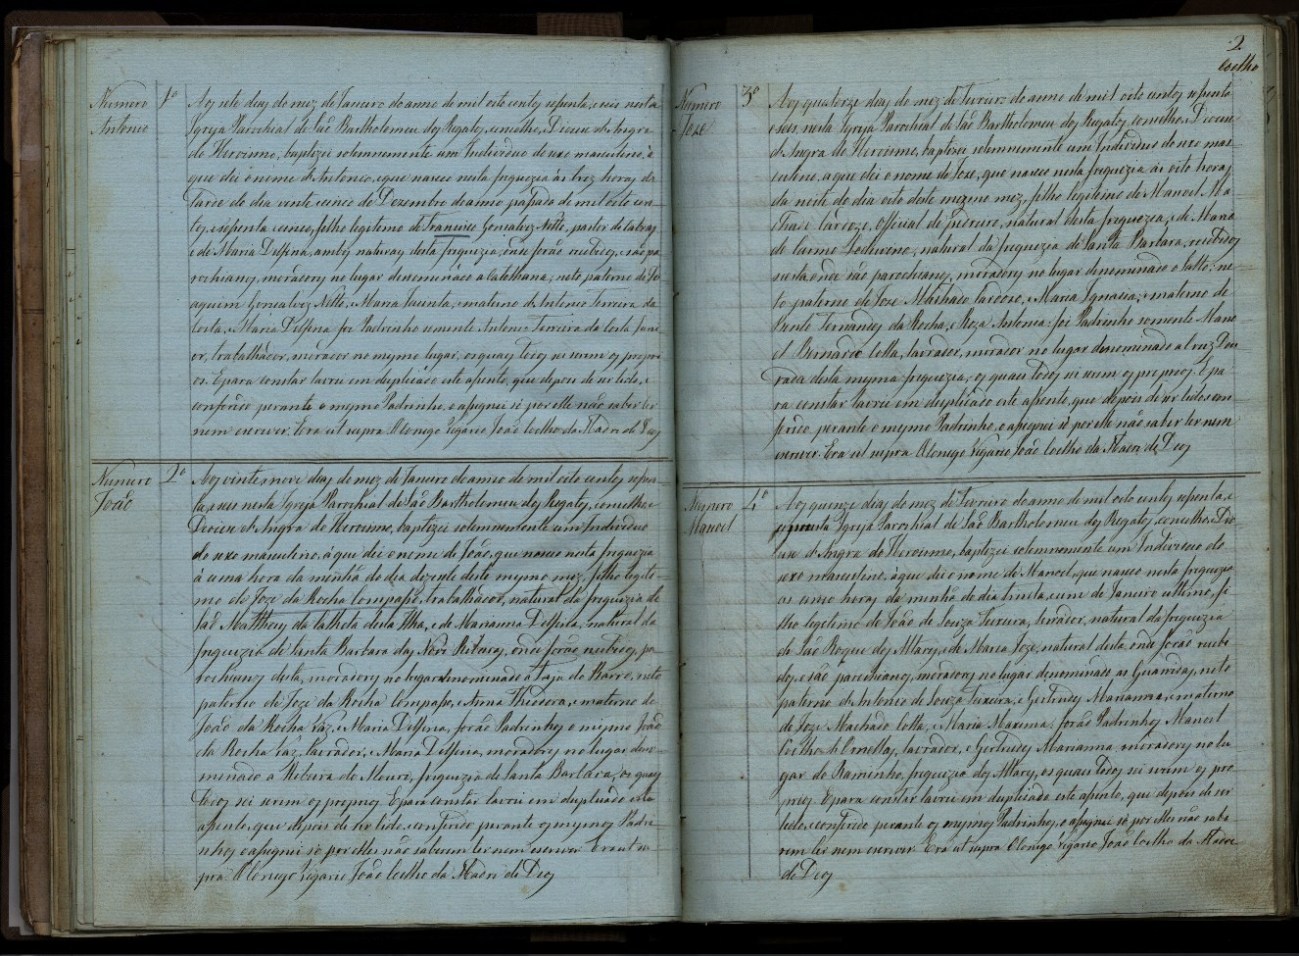 Numero 1º
Antonio
Aos sete dias do mez de Janeiro do anno de mil oito centos setenta, e seis nesta
Igreja Parochial de São Bartholomeu dos Regatos, concelho, e Diocese d'Angra
do Heroismo, baptizei solemnemente um Individuo do sexo masculino, à
que dei o nome d'Antonio, e que nasceu nesta freguezia às trez horas da
tarde do dia vinte e cinco de Dezembro do anno passado de mil oito cen-
tos, e setenta e cinco, filho legitimo de Francisco Gonsalves Netto, pastor de cabras,
e de Maria Delfina, ambos naturaes desta freguezia, onde forão recebidos, e são pa-
rochianos, moradores no lugar denominado a Cathelhana, neto paterno de Jo-
aquim Gonsalves Netto, e Maria, e materno d'Antonio Ferreira da
Costa, e Maria Delfina foi Padrinho somente Antonio Ferreira da Costa Juni-
or, trabalhador, morador no mesmo lugar, os quaes todos sei serem os propri-
os. E para constar lavrei em duplicado este assento, que depois de ser lido, e
conferido perante o mesmo Padrinho, o assignei só por elle não saber ler
nem escrever. Era ut supra O Conego Vigario João Coelho da Madre de Deos
Numero 2º
João
Aos vinte e nove dias do mez de Janeiro do anno de mil oito centos seten-
ta, e seis nesta Igreja Parochial de São Bartholomeu dos Regatos, concelho e
Diocese d'Angra do Heroismo, baptizei solemnemente um Individuo
do sexo masculino, à que dei o nome de João, que nasceu nesta freguezia
à uma hora da manhã do dia dezasete deste mesmo mez, filho legiti-
mo de Joze da Rocha Compasso, trabalhador, natural da freguezia de
São Mattheus da Calheta desta Ilha, e de Marianna Delfina, natural da
freguezia de Santa Barbara das Nove Ribeiras, onde forão recebidos, pa-
rochianos desta, moradores no lugar denominado a Canada do Barro, neto
paterno de Joze da Rocha Compasso, e Anna Thiodora, e materno de
João da Rocha Vaz, e Maria Delfina, forão Padrinhos o mesmo João
da Rocha Vaz, lavrador, e Maria Delfina, moradores no lugar deno-
minado a Ribeira do Mouro, freguezia de Santa Barbara, os quaes
todos sei serem os proprios. E para constar lavrei em duplicado este
assento, que depois de ser lido, e conferido perante os mesmos Padri-
nhos o assignei só por elles não saberem ler nem escrever. Era ut su-
pra O Conego Vigario João Coelho da Madre de Deos
2
Coelho
Numero 3º
Joze
Aos quatorze dias do mez de Fevereiro do anno de mil oito centos setenta
e seis, nesta Igreja Parochial de São Bartholomeu dos Regatos, concelho, e Diocese
d'Angra do Heroismo, baptizei solemnemente um Individuo do sexo mas-
culino, a que dei o nome de Joze, que nasceu nesta freguezia às oito horas
da noite do dia oito deste mesmo mez, filho legitimo de Manoel Ma-
chado Cardozo, Official de Pedreiro, natural desta freguezia, e de Maria
do Carmo, natural da freguezia de Santa Barbara, recebidos
nesta onde são parochianos, moradores no lugar denominado o Salto; ne-
to paterno de Joze Machado Cardozo, e Maria Ignacia, e materno de
Bento Fernandes da Rocha, e Roza Antonia: foi Padrinho somente Mano-
el Bernardo Cotta, lavrador, morador no lugar denominado a Cruz Dou-
rada desta mesma freguezia, os quaes todos sei serem os proprios. E pa-
ra constar lavrei em duplicado este assento, que depois de ser lido, e con-
ferido perante o mesmo Padrinho, o assignei só por elle não saber ler nem
escrever. Era ut supra O Conego Vigario João Coelho da Madre de Deos
Numero 4º
Manoel
Aos quinze dias do mez de Fevereiro do anno de mil oito centos setenta, e
seis nesta Igreja Parochial de São Bartholomeu dos Regatos, concelho, e Dio-
cese d'Angra do Heroismo, baptizei solemnemente um Individuo do
sexo masculino, à que dei o nome de Manoel, que nasceu nesta freguezia
as cinco horas da manhã do dia trinta, e um de Janeiro ultimo, fi-
lho legitimo de João de Souza Teixeira, lavrador, natural da freguezia
de São Roque dos Altares, e de Maria Joze, natural desta onde forão recebi-
dos, e são parochianos, moradores no lugar denominado as Guaritas, neto
paterno de Antonio de Souza Teixeira, e Gertrudes Marianna, e materno
de Joze Machado Cotta, e Maria Maxima, forão Padrinhos Manoel
Coelho d'Ornellas, lavrador, e Gertrudes Marianna, moradores no lu-
gar do Raminho, freguezia dos Altares, os quaes todos sei serem os pro-
prios. E para constar lavrei em duplicado este assento, que depois de ser
lido, e conferido perante os mesmos Padrinhos, o assignei só por elles não sabe-
rem ler nem escrever. Era ut supra O Conego Vigario João Coelho da Madre
de Deos